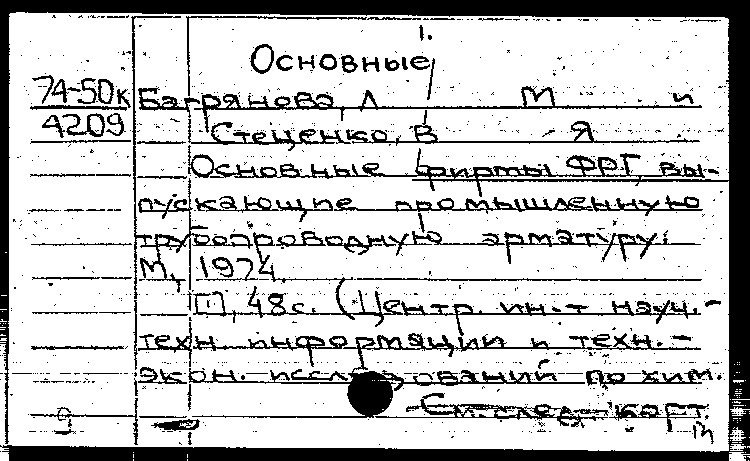 1.
Основные
74-50к Багрянова, Л М и
4209 Стеценко, В Я
Основные фирмы ФРГ, вы-
пускающие промышленную
трубопроводную арматуру.
М., 1974.
[1], 48с. (Центр. ин-т науч.-
техн. информации и техн.-
экон. исследований по хим.
См. след. карт.
9